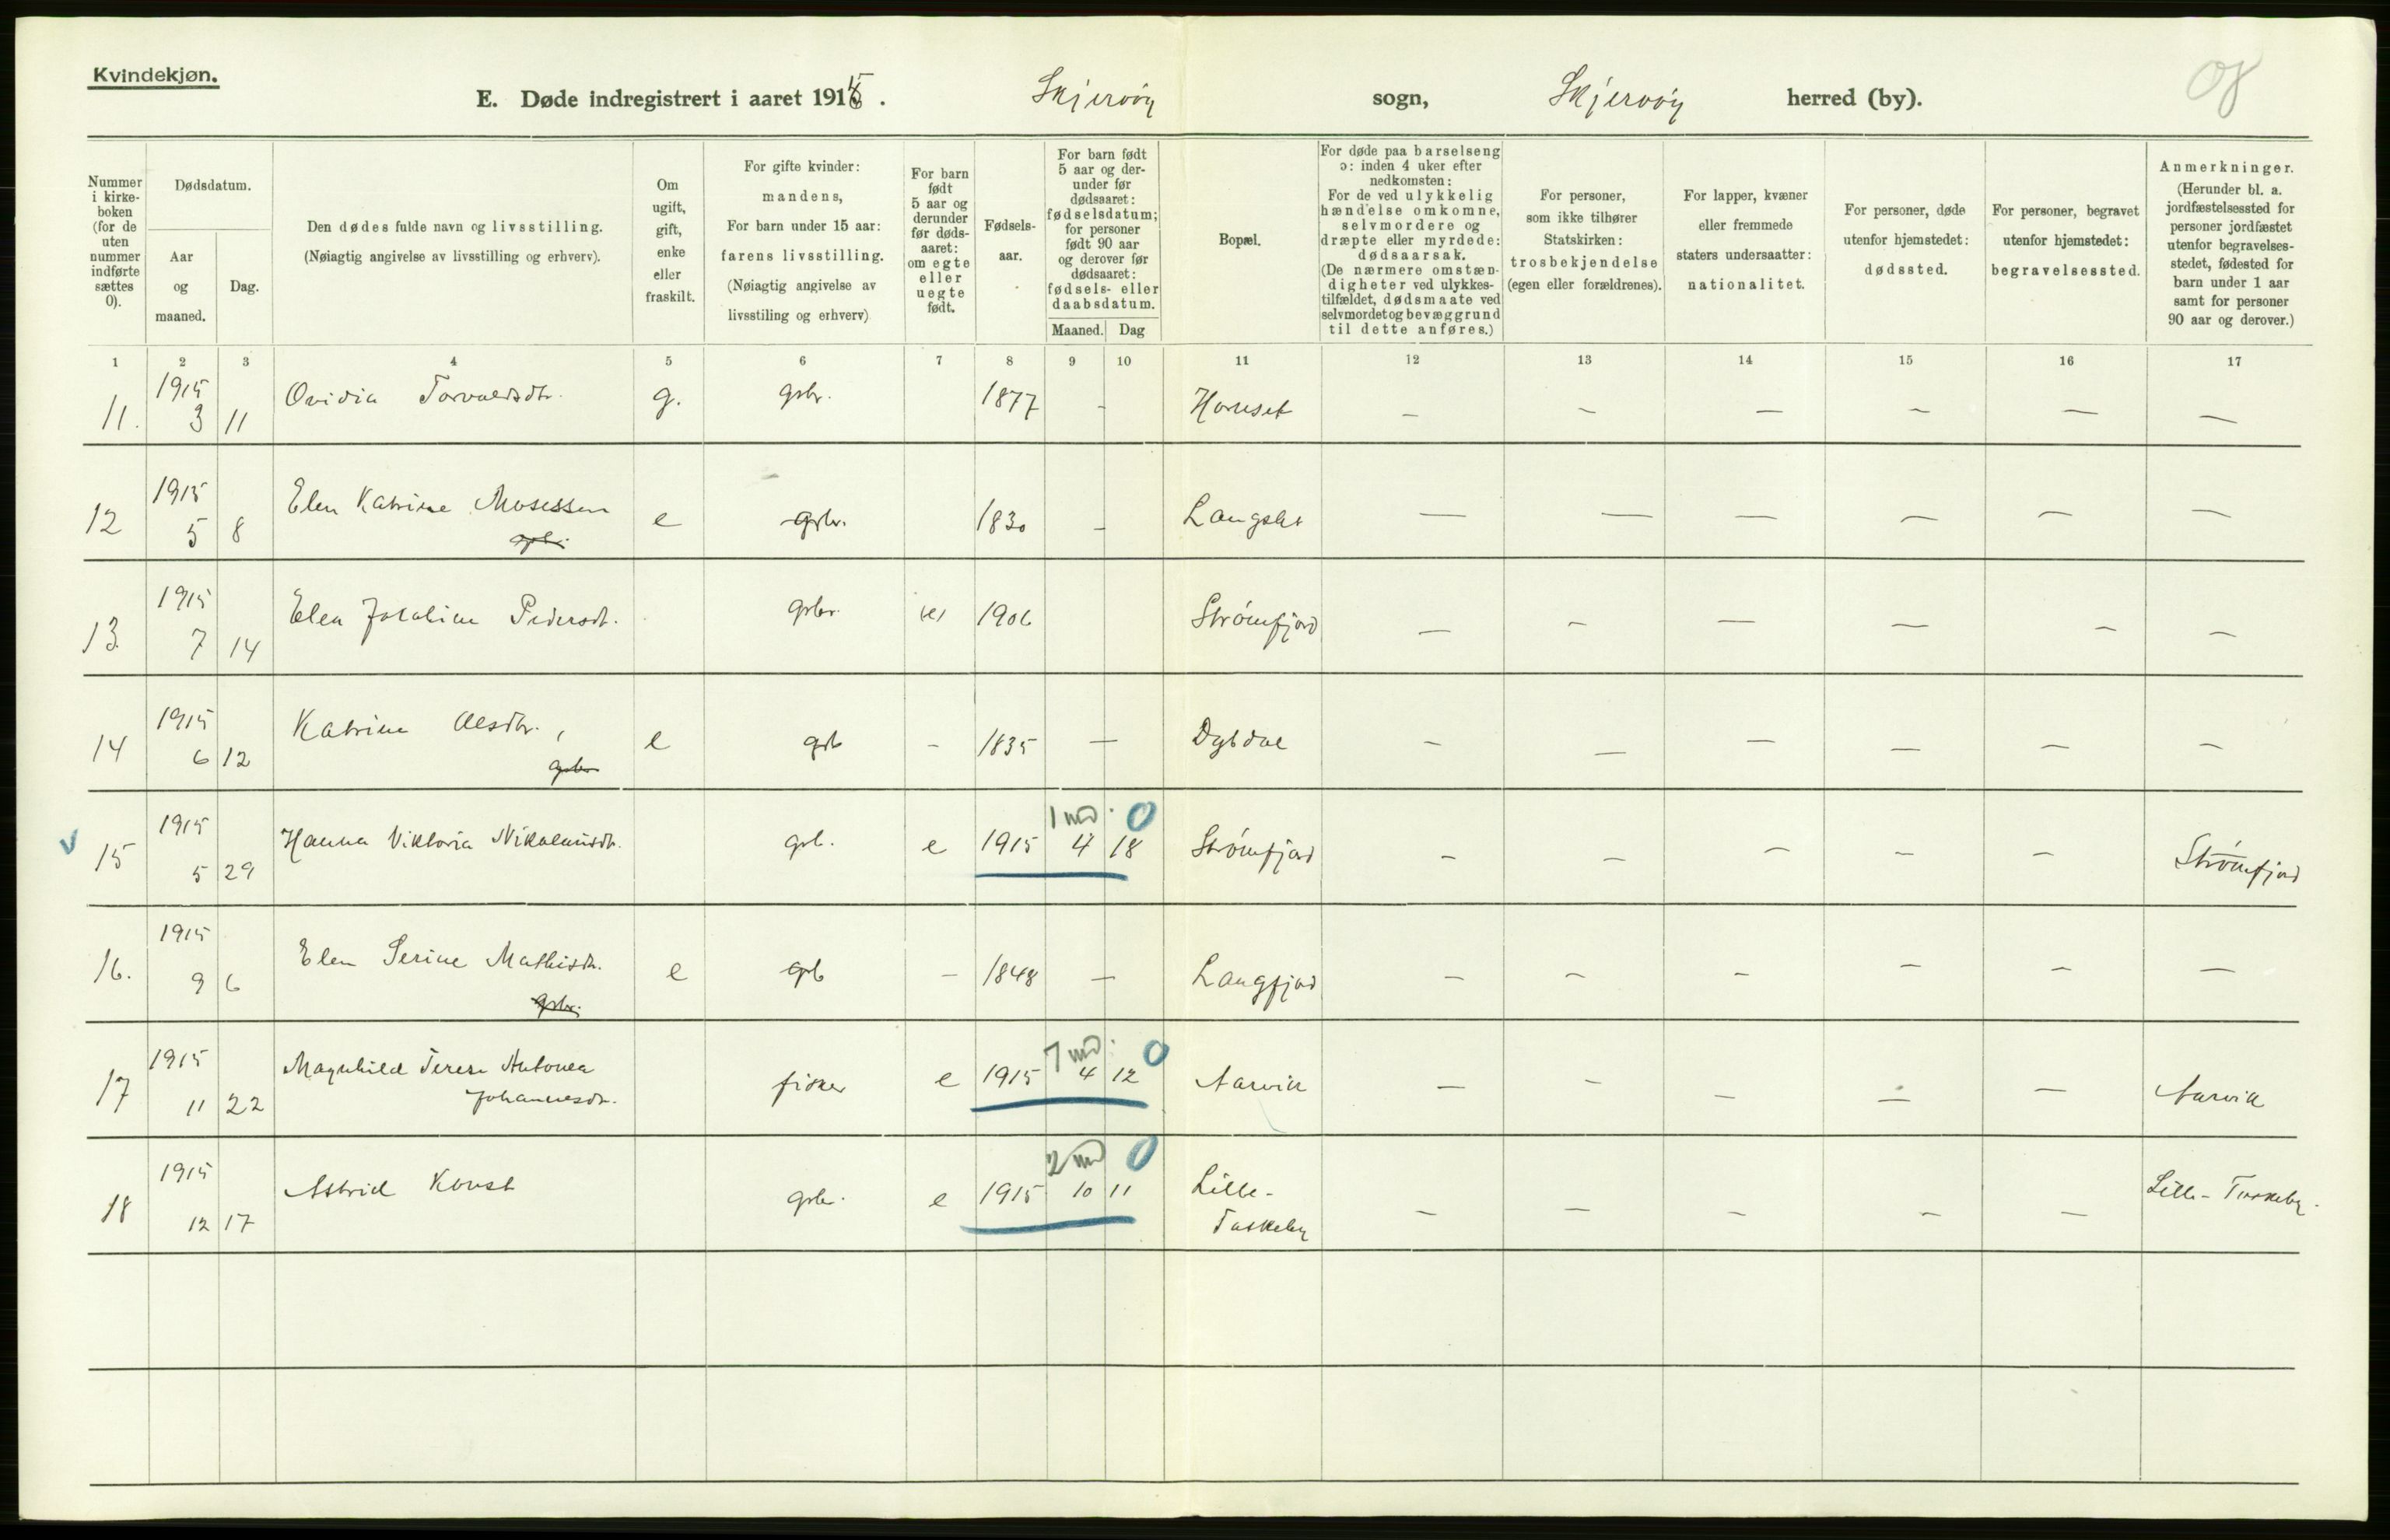 Kvindekjøn.
E. Døde indregistrert i aaret 1915. Skjervøy sogn, Skjervøy herred (by).
Nummer i kirkeboken (for de uten nummer indførte sættes 0).
Dødsdatum.
Aar og maaned.
Dag.
Den dødes fulde navn og livsstilling.
(Nøiagtig angivelse av livsstilling og erhverv).
Om ugift, gift, enke eller fraskilt.
For gifte kvinder: mandens,
For barn under 15 aar: farens livsstilling.
(Nøiagtig angivelse av livsstiling og erhverv)
For barn født 5 aar og derunder før dødsaaret: om egte eller uegte født.
Fødselsaar.
For barn født 5 aar og derunder før dødsaaret: fødselsdatum; for personer født 90 aar og derover før dødsaaret: fødsels- eller daabsdatum.
Maaned. Dag
Bopæl.
For døde paa barselseng ɔ: inden 4 uker efter nedkomsten:
For de ved ulykkelig hændelse omkomne, selvmordere og dræpte eller myrdede: dødsaarsak.
(De nærmere omstændigheter ved ulykkestilfældet, dødsmaate ved selvmordet og bevæggrund til dette anføres.)
For personer, som ikke tilhører Statskirken: trosbekjendelse (egen eller forældrenes).
For lapper, kvæner eller fremmede staters undersaatter: nationalitet.
For personer, døde utenfor hjemstedet: dødssted.
For personer, begravet utenfor hjemstedet: begravelsessted.
Anmerkninger.
(Herunder bl. a. jordfæstelsessted for personer jordfæstet utenfor begravelsesstedet, fødested for barn under 1 aar samt for personer 90 aar og derover.)
1 2 3 4 5 6 7 8 9 10 11 12 13 14 15 16 17
11. 1915 3 11 Ovidia Torvaldsdtr. g. grbr. 1877 – – – – – – –
12 1915 5 8 Elen Katrine Mosessen e grbr. 1830 – – – – – – –
13. 1915 7 14 Elen Pedersdt. grbr. (e) 1906 Strømfjord – – – – – –
14 1915 6 12 Katrine Olsdtr. e grb – 1835 – – – – – – –
v 15 1915 5 29 Hanna Viktoria grb. e 1915 1 md. 0 4 18 Strømfjord – – – – – Strømfjord
16. 1915 9 6 Elen Serine Mathisdtr. e grb – 1848 – Langfjord – – – – – –
17 1915 11 22 Magnhild Johannesdtr. fisker e 1915 7 md. 0 4 12 – – – – –
18 1915 12 17 Astrid grbr. e 1915 2 md 0 10 11 Lille- – – – – – Lille-